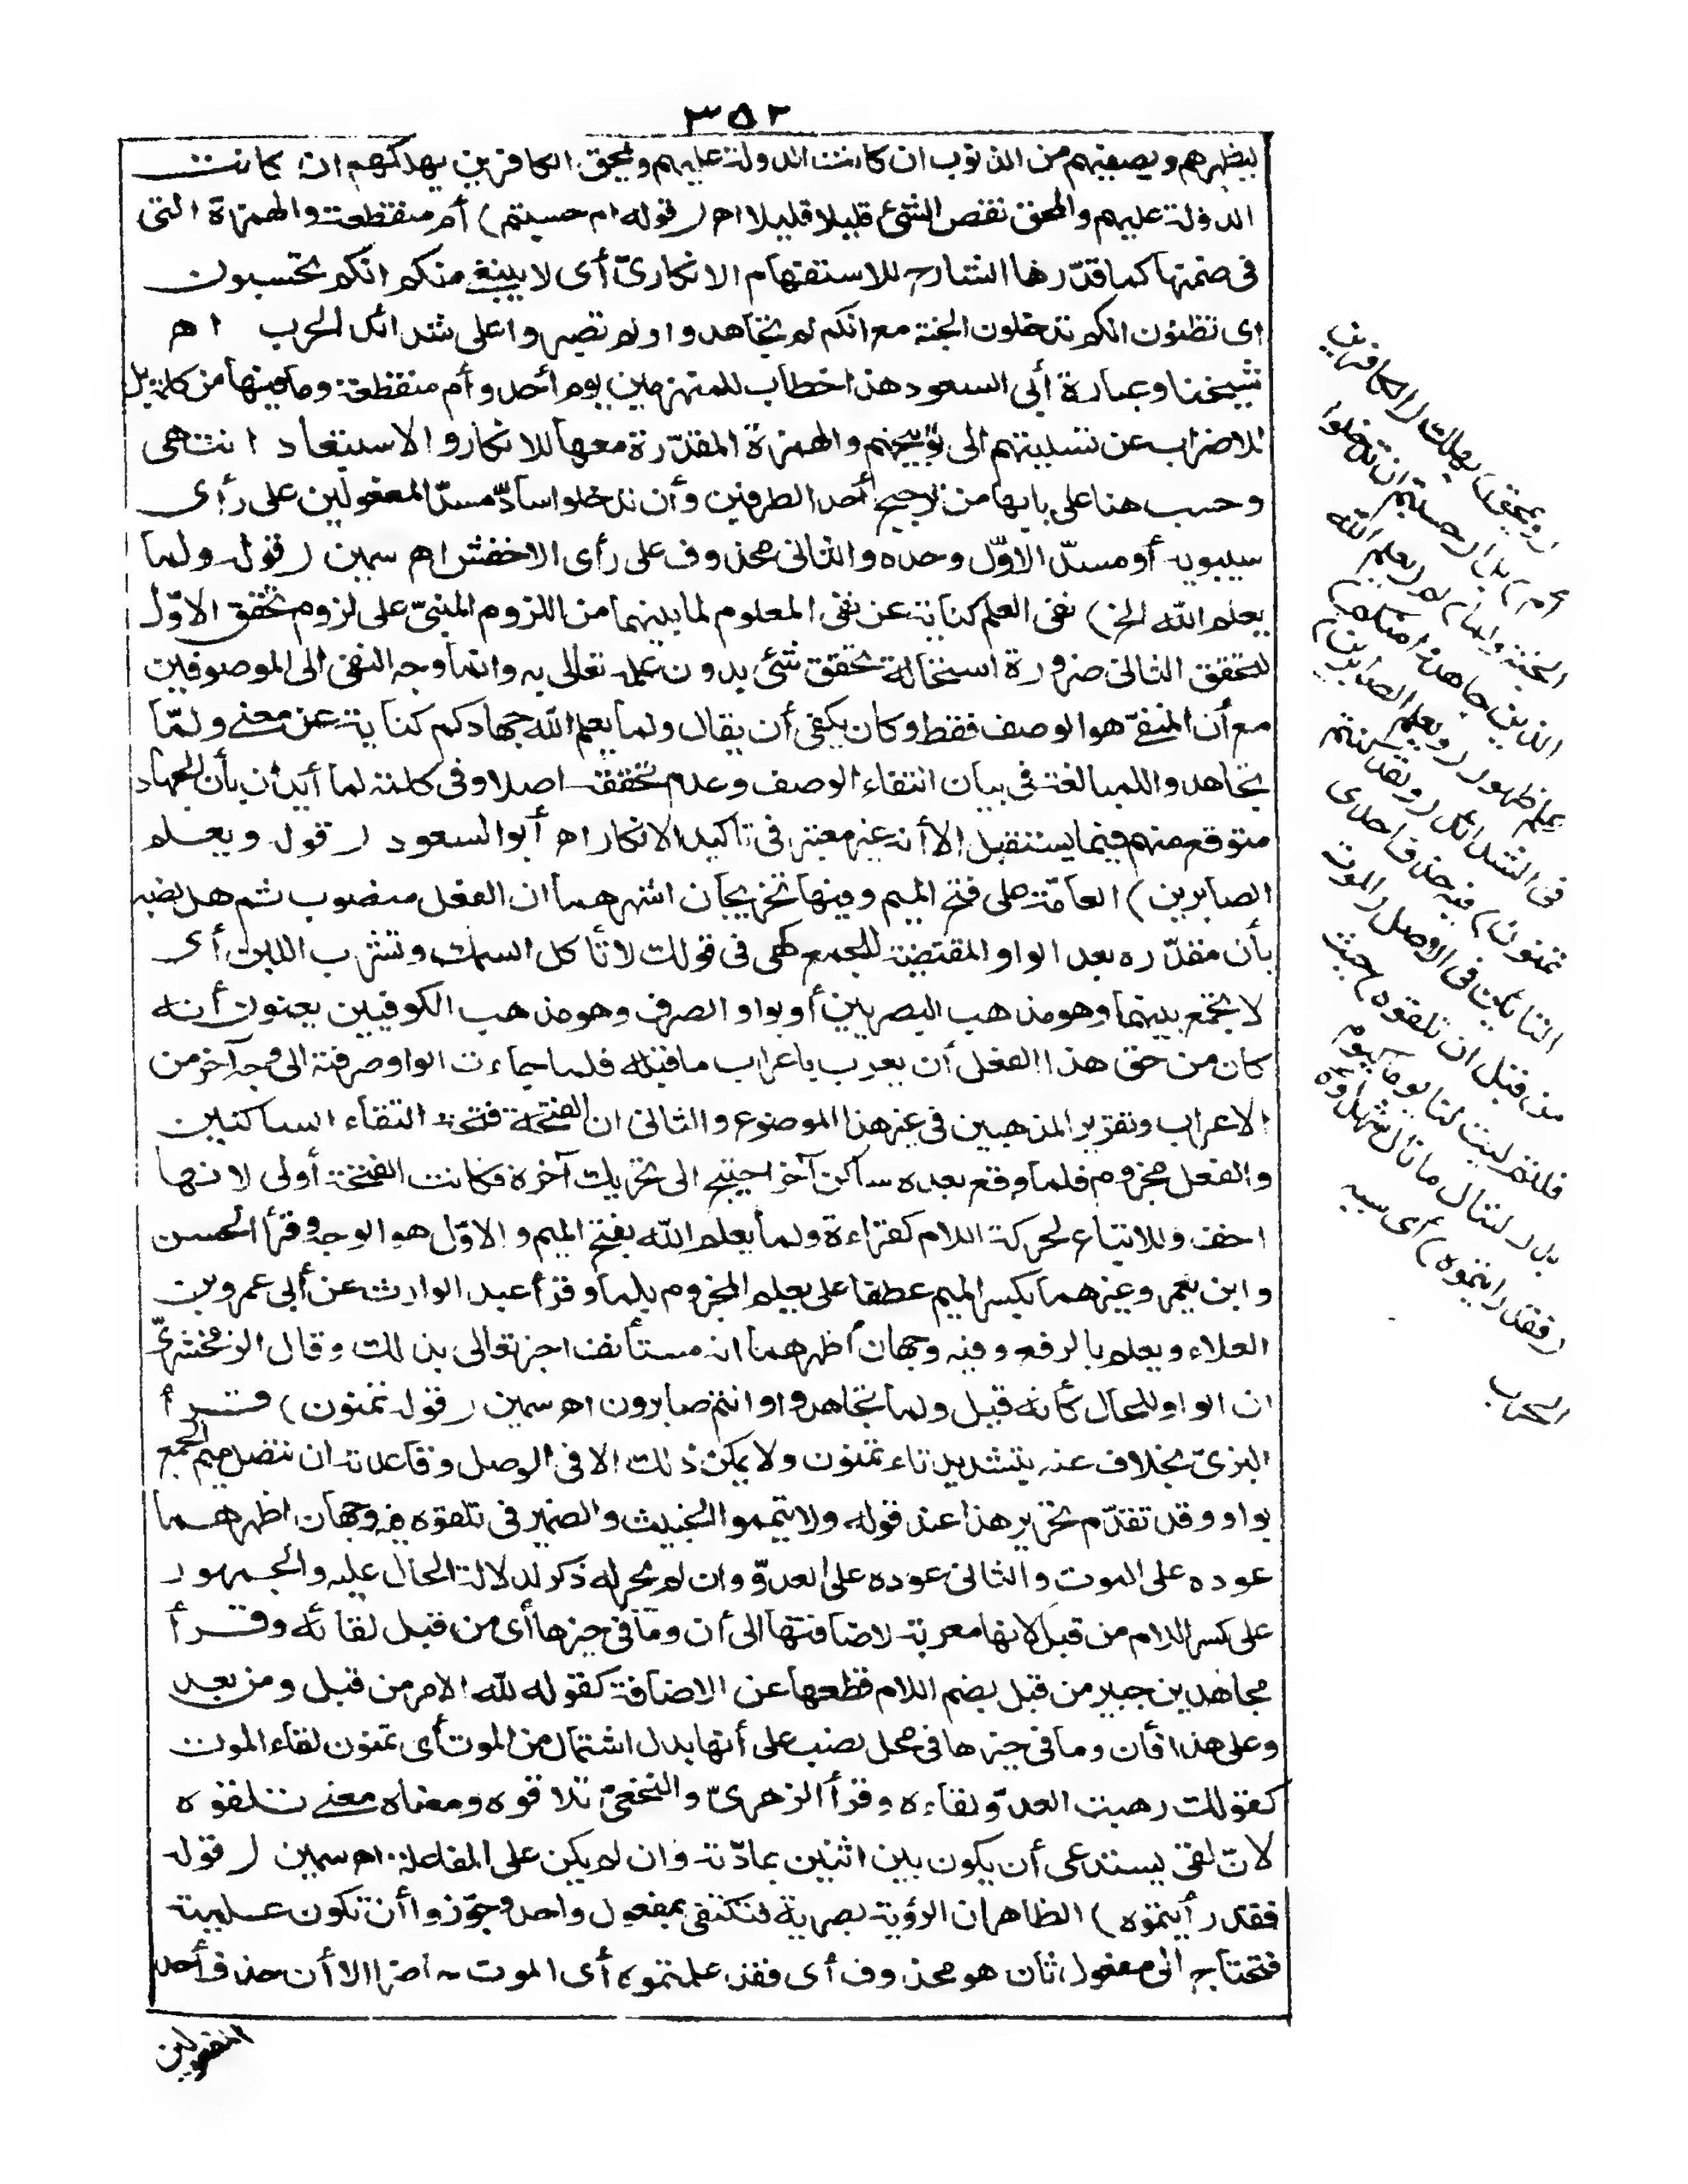 ٣٥٢
ليطهرهم ويصفيهم من الذنوب ان كانت الدولة عليهم ويمحق الكافرين يهلكهم ان كانت
الدولة عليهم والمحق نقص الشئ قليلا قليلا اه (قوله ام حسبتم) أم منقطعة والهمزة التى
فى ضمنها كما قدّرها الشارح للاستفهام الانكارىّ أى لا ينبغى منكم انكم تحسبون
اى تظنون انكم تدخلون الجنة مع انكم لم تجاهدوا ولم تصبروا على شدائد الحرب اه
شيخنا وعبارة أبى السعود هذا خطاب للمنهزمين يوم أحد وأم منقطعة وما فيها من كلمة بل
للاضراب عن تسليتهم الى توبيخهم والهمزة المقدّرة معها للانكار والاستبعاد انتهى
وحسب هنا على بابها من ترجيح أحد الطرفين وأن تدخلوا سادّ مسدّ المفعولين على رأى
سيبويه أو مسدّ الاوّل وحده والثانى محذوف على رأى الاخفش اه سمين (قوله ولما
يعلم الله الخ) نفى العلم كناية عن نفى المعلوم لما بينهما من اللزوم المبنىّ على لزوم تحقق الاوّل
لتحقق الثانى ضرورة استحالة تحقق شئ بدون علمه تعالى به وانما وجه النفى الى الموصوفين
مع أن المنفىّ هو الوصف فقط وكان يكفى أن يقال ولما يعلم الله جهادكم كناية عن معنى ولمّا
تجاهدوا للمبالغة فى بيان انتفاء الوصف وعدم تحققه اصلا وفى كلمة لما أيذان بأن الجهاد
متوقع منهم فيما يستقبل إلا أنه غير معتبر فى تاكيد الانكار اه أبو السعود (قوله ويعلم
الصابرين) العامّة على فتح الميم وفيها تخريجان اشهرهما ان الفعل منصوب ثم هل نصبه
بأن مقدّره بعد الواو المقتضية للجمع كهى فى قولك لا تأكل السمك وتشرب اللبن أى
لا تجمع بينهما وهو مذهب البصريين أو بواو الصرف وهو مذهب الكوفيين يعنون أنه
كان من حق هذا الفعل أن يعرب باعراب ما قبله فلما جاءت الواو صرفته الى وجه آخر من
الاعراب وتقرير المذهبين فى غير هذا الموضوع والثانى ان الفتحة فتحة التقاء الساكنين
والفعل مجزوم فلما وقع بعده ساكن آخر احتيج الى تحريك آخره فكانت الفتحة أولى لانها
اخف وللاتباع لحركة اللام كقراءة ولما يعلم الله بفتح الميم والاوّل هو الوجه وقرأ الحسن
وابن يعمر وغيرهما بكسر الميم عطفا على يعلم المجزوم بلما وقرأ عبد الوارث عن أبى عمرو بن
العلاء ويعلم بالرفع وفيه وجهان أظهرهما انه مستأنف اخبر تعالى بذلك وقال الزمخشرىّ
ان الواو للحال كأنه قيل ولما تجاهدوا وانتم صابرون اه سمين (قوله تمنون) قرأ
البزىّ بخلاف عنه بتشديد تاء تمنون ولا يمكن ذلك الا فى الوصل وقاعدته ان تتصل ميم الجمع
بواو وقد تقدّم تحرير هذا عند قوله ولا تيمموا الخبيث والضمير فى تلقوه فيه وجهان اظهرهما
عوده على الموت والثانى عوده على العدوّ وان لم يجر له ذكر لدلالة الحال عليه والجمهور
على كسر اللام من قبل لانها معربة لاضافتها الى أن وما فى حيزها أى من قبل لقائه وقرأ
مجاهد بن جبير من قبل بضم اللام قطعها عن الاضافة كقوله لله الامر من قبل ومن بعد
وعلى هذا فأن وما فى حيزها فى محل نصب على أنها بدل اشتمال من الموت أى تمنون لقاء الموت
كقولك رهبت العدوّ لقاءه وقرأ الزهرىّ والنخعىّ تلاقوه ومعناه معنى تلقوه
لانّ لقى يستدعى أن يكون بين اثنين بمادّته وان لم يكن على المفاعلة اه سمين (قوله
فقد رأيتموه) الظاهر ان الرؤية بصرية فتكتفى بمفعول واحد وجوّزوا أن تكون علمية
فتحتاج الى مفعول ثان هو محذوف أى فقد علمتموه أى الموت حاضرا الا أن حذف أحد
المفعولين
(ويمحق) يهلك (الكافرين
أم) بل أ (حسبتم ان تدخلوا
الجنة ولما) لم (يعلم الله
الذين جاهدوا منكم)
علم ظهور (ويعلم الصابرين)
فى الشدائد (ولقد كنتم
تمنون) فيه حذف احدى
التائين فى الاصل (الموت
من قبل ان تلقوه) حيث
قلتم ليت لنا يوما كيوم
بدر لننال ما نال شهداؤه
(فقد رايتموه) أى سببه
الحرب